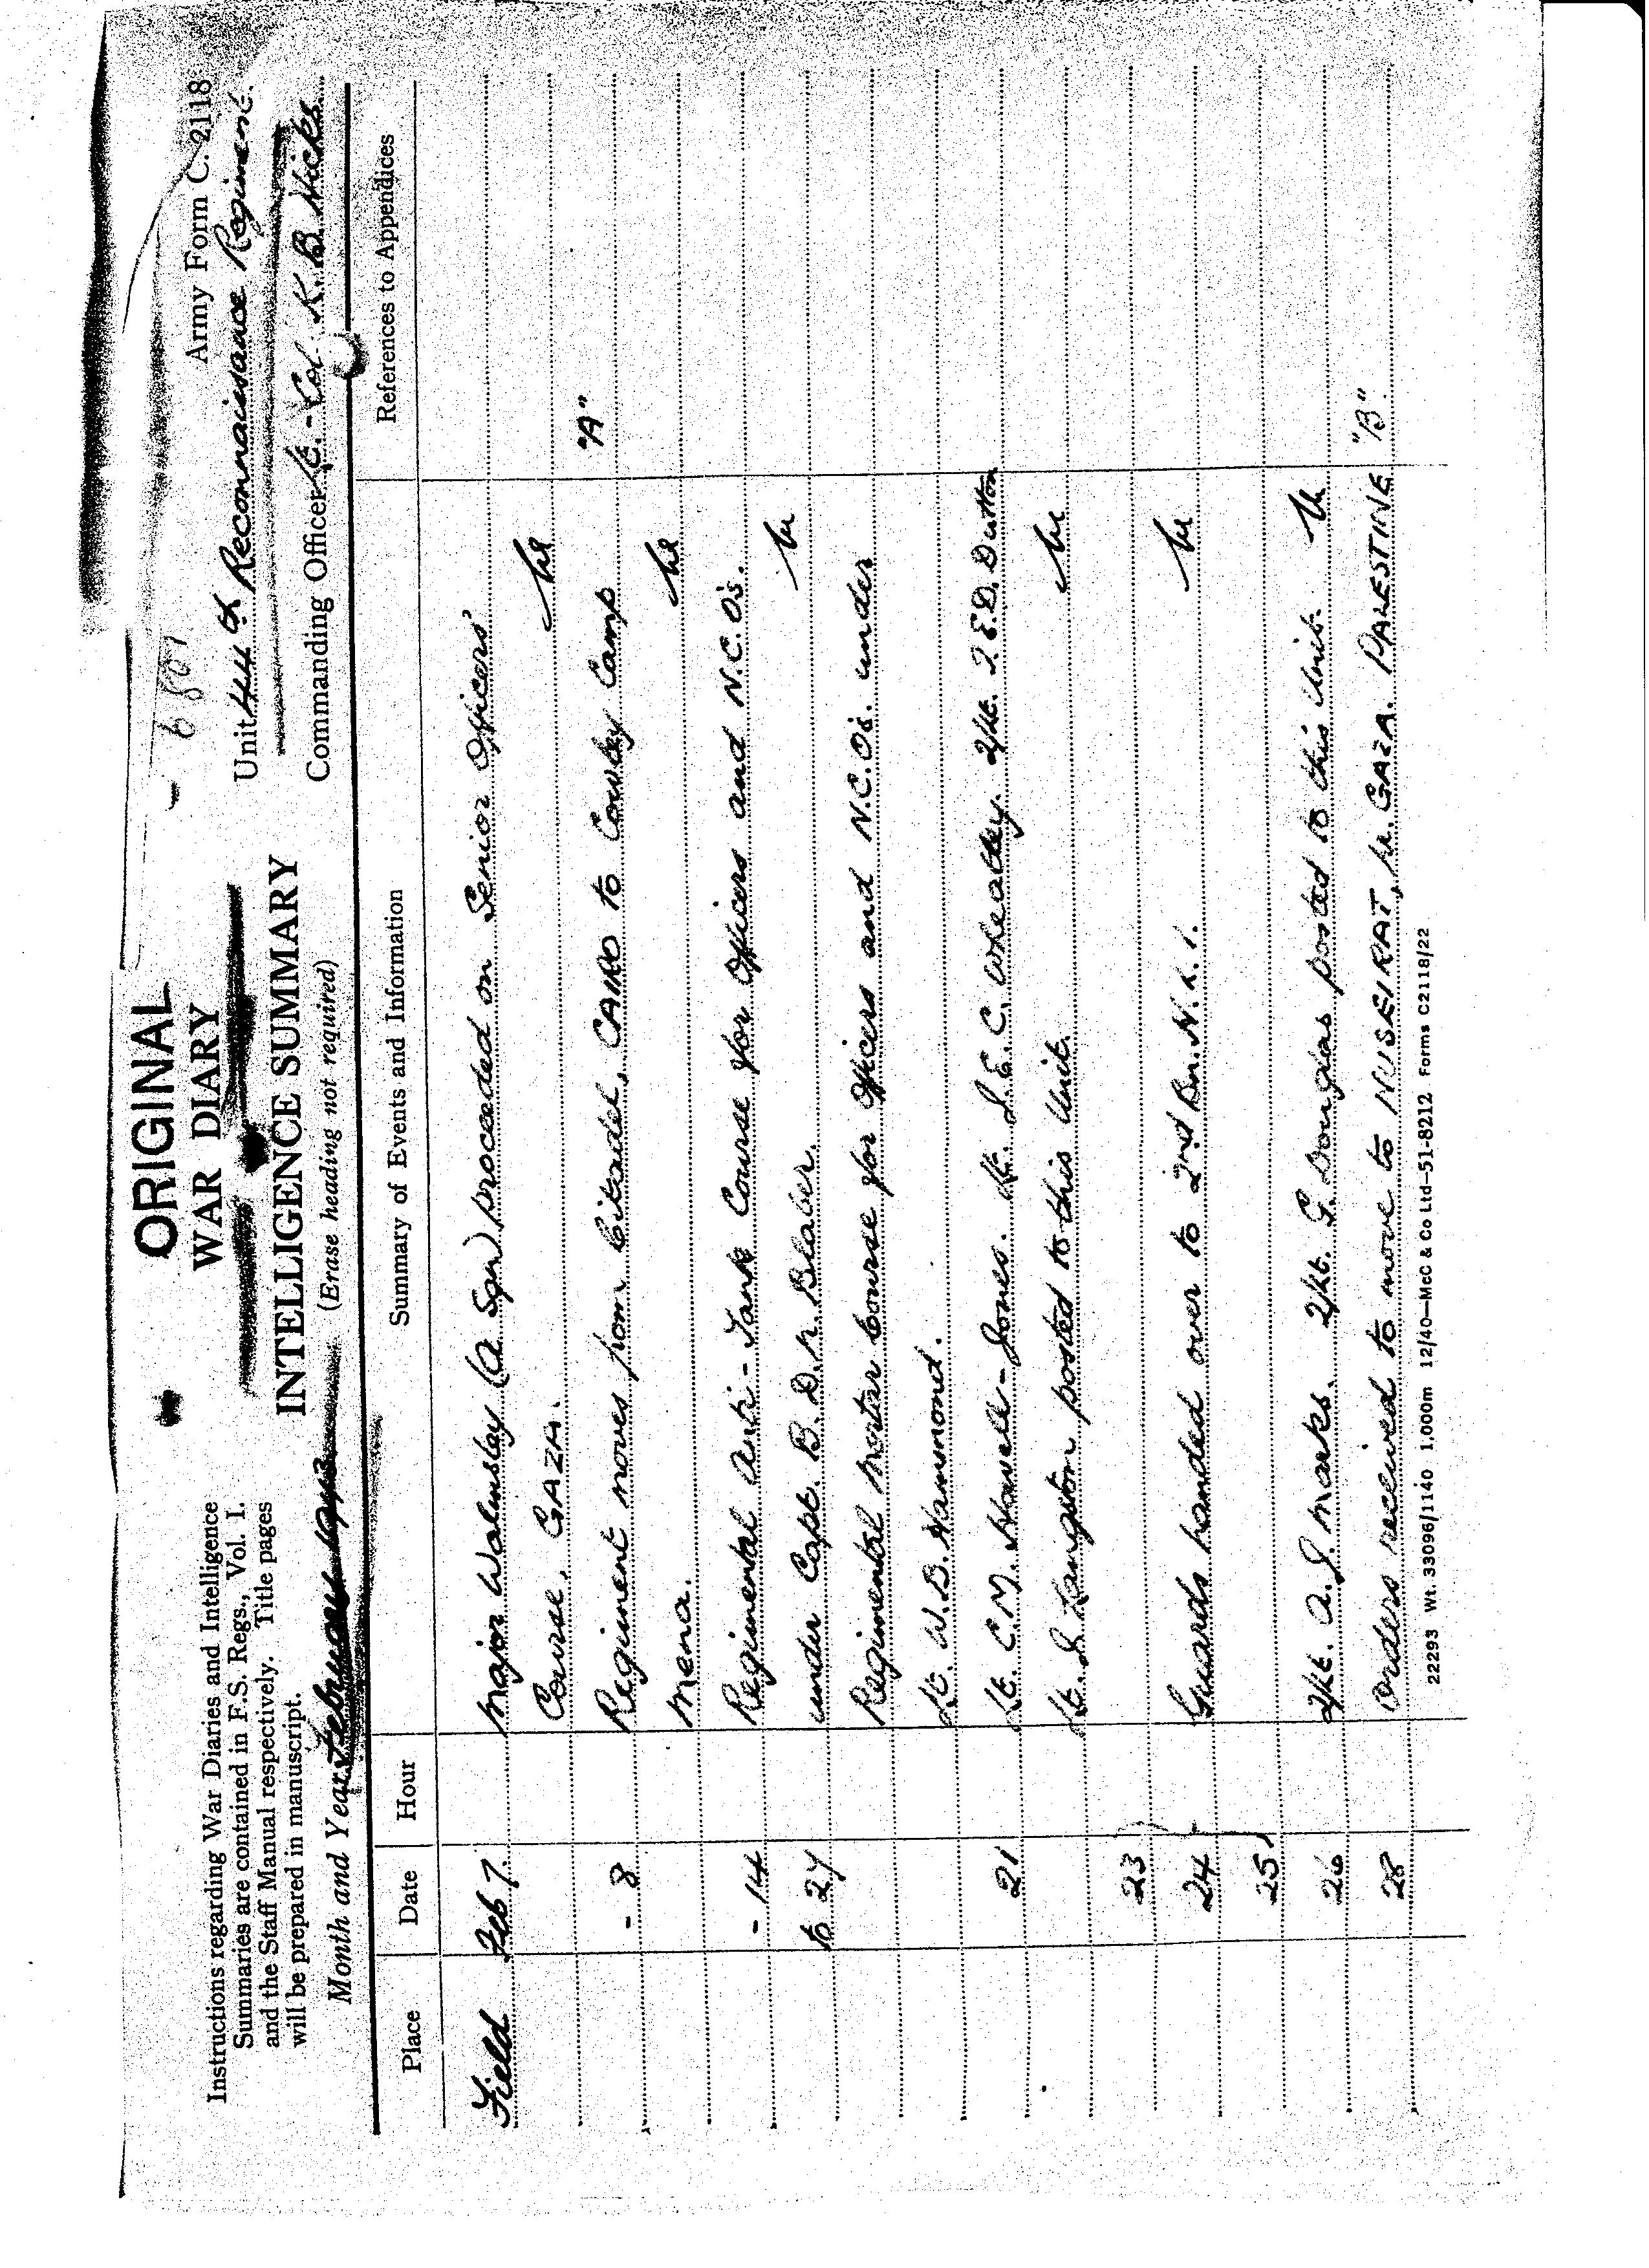 ORIGINAL
Army Form C. 2118
WAR DIARY
INTELLIGENCE SUMMARY
(Erase heading not required)
Instructions regarding War Diaries and Intelligence
Summaries are contained in F.S. Regs., Vol. I.
and the Staff Manual respectively. Title pages
will be prepared in manuscript.
Month and Year February 1943
Unit 44th Reconnaissance Regiment.
Commanding Officer Lt.-Col. K.B. Hicks
Place Date Hour Summary of Events and Information References to Appendices
Field Feb 7. Major Walmsley (A Sqn) proceeded on Senior Officers'
Course, GAZA.
- 8 Regiment moves from Citadel, CAIRO to Cowley Camp "A"
Mena.
- 14 Regimental Anti-Tank Course for Officers and N.C.O's.
to 27 under Capt. B.D.N. Blaber.
Regimental Mortar Course for Officers and N.C.O's. under
Lt. W.B. Hammond.
21 Lt. C.M. Howell-Jones. Lt. J.E.C. Wheatley. 2/Lt. J.E.D. Dutton
Lt. J. Langston posted to this Unit.
23
24 Guards handed over to 2nd Bn. N.Z.I.
25
26 2/Lt. A.J. Marks. 2/Lt. G. Douglas posted to this Unit.
28 Orders received to move to NUSEIRAT, Nr. GAZA. PALESTINE "B"
22293 Wt. 33096/1140 1,000m 12/40—McC & Co Ltd—51-8212 Forms C2118/22